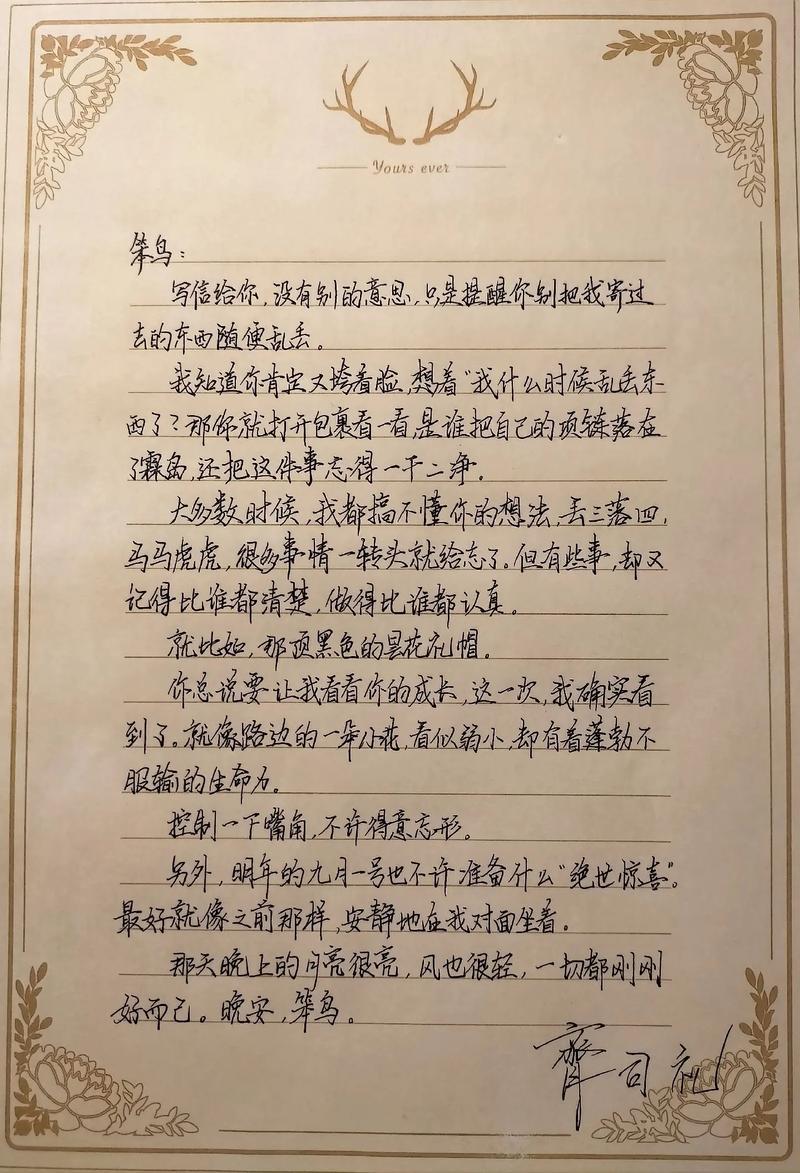 Yours ever
笨鸟：
写信给你，没有别的意思，只是提醒你别把我寄过
去的东西随便乱丢。
我知道你肯定又垮着脸，想着“我什么时候乱丢东
西了？那你就打开包裹看一看，是谁把自己的项链落在
了霖岛，还把这件事忘得一干二净。
大多数时候，我都搞不懂你的想法，丢三落四，
马马虎虎，很多事情一转头就给忘了。但有些事，却又
记得比谁都清楚，做得比谁都认真。
就比如，那顶黑色的昙花礼帽。
你总说要让我看看你的成长，这一次，我确实看
到了。就像路边的一朵小花，看似弱小，却有着蓬勃不
服输的生命力。
控制一下嘴角，不许得意忘形。
另外，明年的九月一号也不许准备什么“绝世惊喜”。
最好就像之前那样，安静地在我对面坐着。
那天晚上的月亮很亮，风也很轻，一切都刚刚
好而已。晚安，笨鸟。
齐司礼